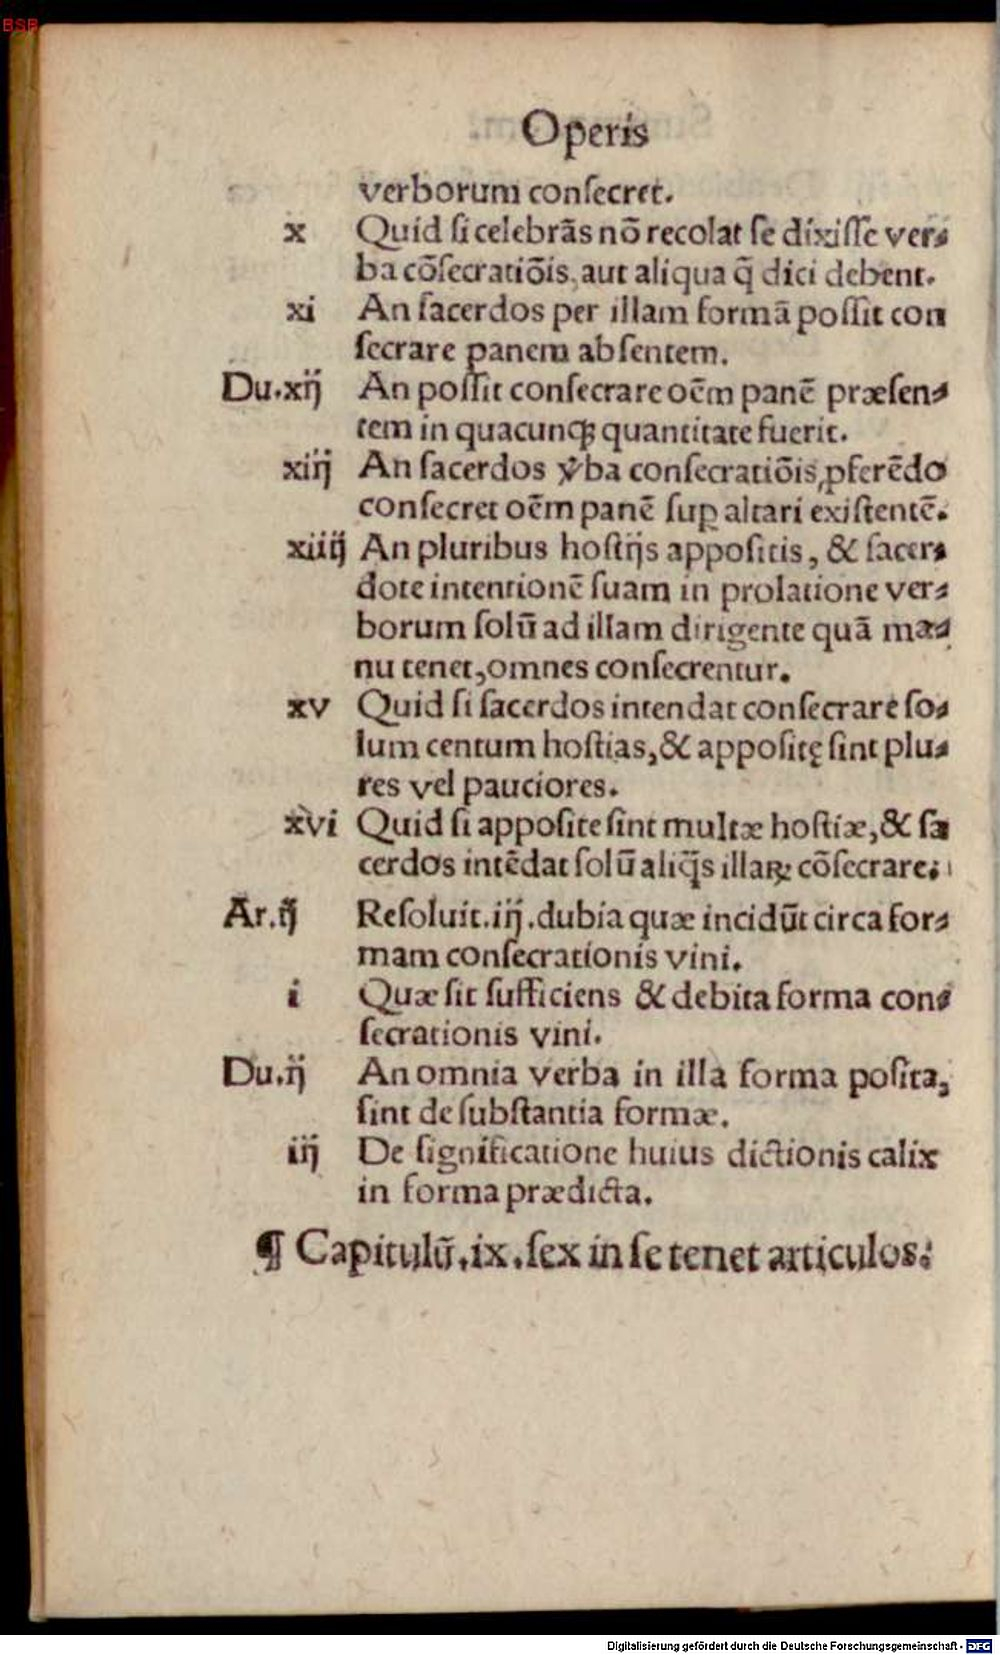 BSB
Operis
verborum conſecret.
x Quid ſi celebrãs nõ recolat ſe dixiſſe ver⸗
ba cõſecratiõis, aut aliqua q̃ dici debent.
xi An ſacerdos per illam formã poſſit con
ſecrare panem abſentem.
Du.xij An poſſit conſecrare oẽm panẽ præſen⸗
tem in quacunqꝫ quantitate fuerit.
xiij An ſacerdos v̾ba conſecratiõis ꝓferẽdo
conſecret oẽm panẽ ſuꝑ altari exiſtentẽ.
xiiij An pluribus hoſtijs appoſitis, & ſacer⸗
dote intentionẽ ſuam in prolatione ver⸗
borum ſolũ ad illam dirigente quã ma⸗
nu tenet, omnes conſecrentur.
xv Quid ſi ſacerdos intendat conſecrare ſo⸗
lum centum hoſtias, & appoſitę ſint plu⸗
res vel pauciores.
xvi Quid ſi appoſite ſint multæ hoſtiæ, & ſa
cerdos intẽdat ſolũ aliq̃s illaꝝ cõſecrare.
Ar.ij Reſoluit.iij.dubia quæ incidũt circa for⸗
mam conſecrationis vini.
i Quæ ſit ſufficiens & debita forma con⸗
ſecrationis vini.
Du.ij An omnia verba in illa forma poſita,
ſint de ſubſtantia formæ.
iij De ſignificatione huius dictionis calix
in forma prædicta.
¶ Capitulũ.ix.ſex in ſe tenet articulos.
Digitalisierung gefördert durch die Deutsche Forschungsgemeinschaft - DFG